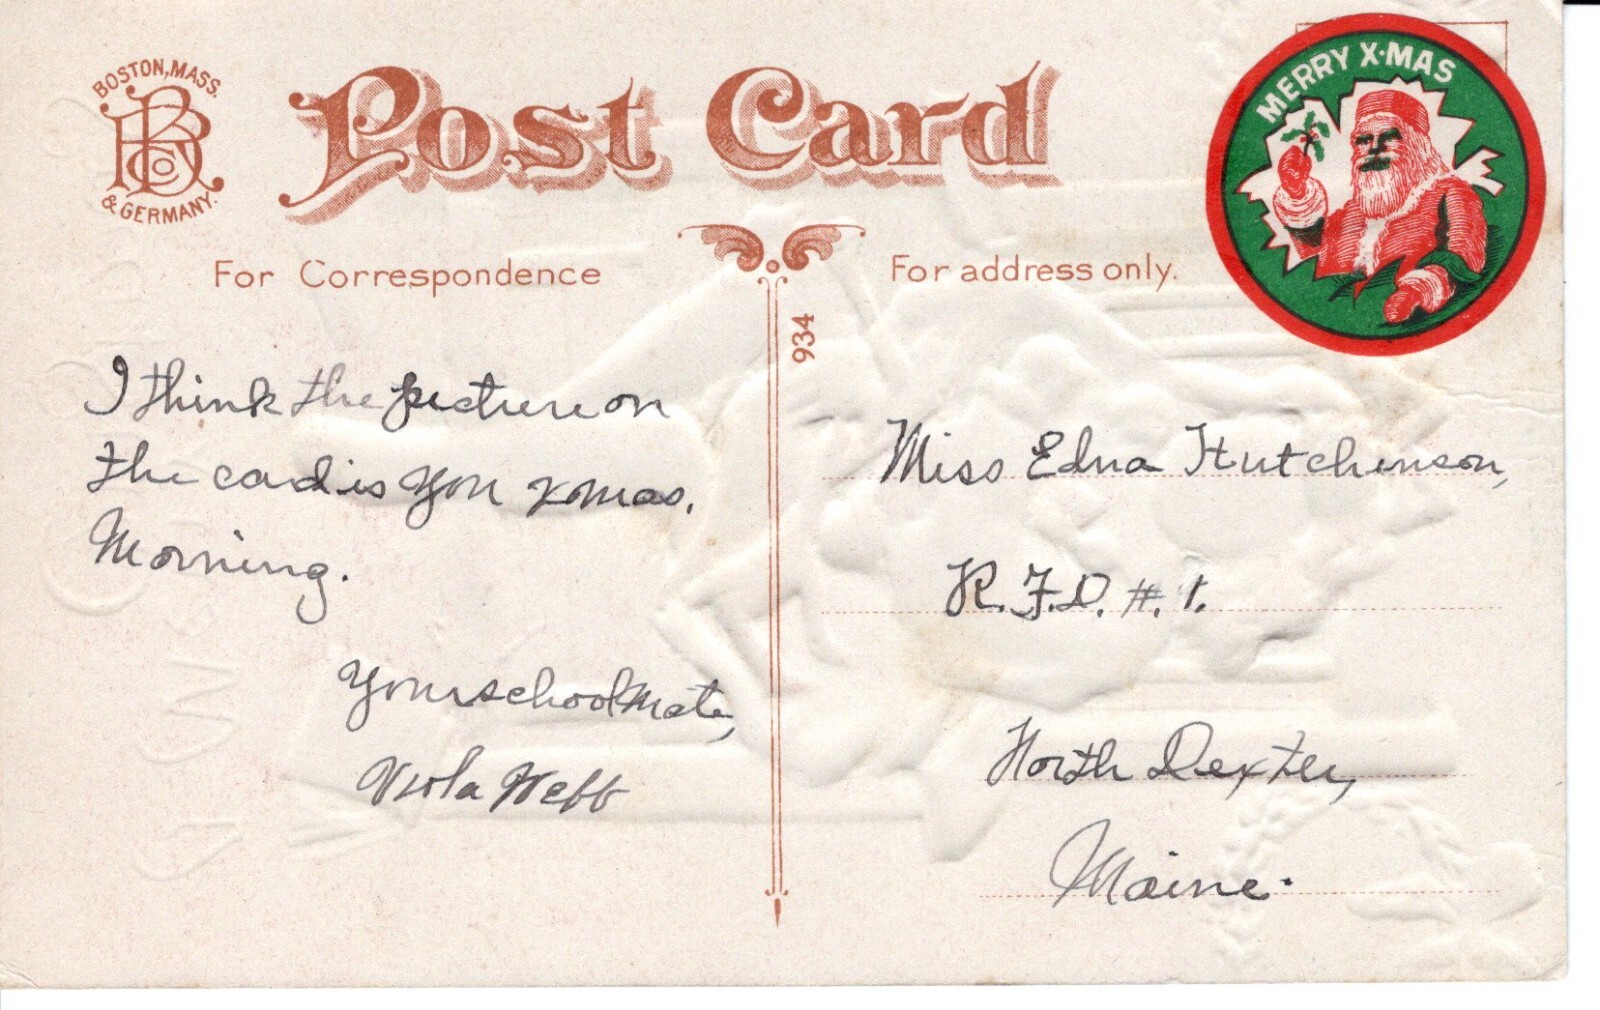 BOSTON, MASS.
& GERMANY.
Post Card
MERRY X-MAS
For Correspondence
For address only.
934
I think the picture on
the card is you Xmas.
Morning.
Your schoolmate,
Viola Webb
Miss Edna Hutchinson,
R.F.D. #. 1.
North Dexter,
Maine.